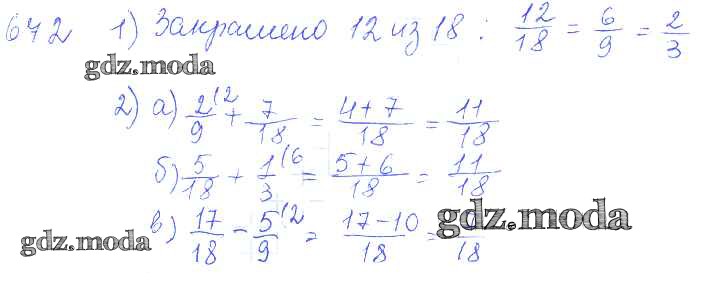 672 1) Закрашено 12 из 18 : 12/18 = 6/9 = 2/3
gdz.moda
2) а) 2/9 (2 + 7/18 = 4+7/18 = 11/18
б) 5/18 + 1/3 (6 = 5+6/18 = 11/18
в) 17/18 - 5/9 (2 = 17-10/18 = /18
gdz.moda
gdz.moda